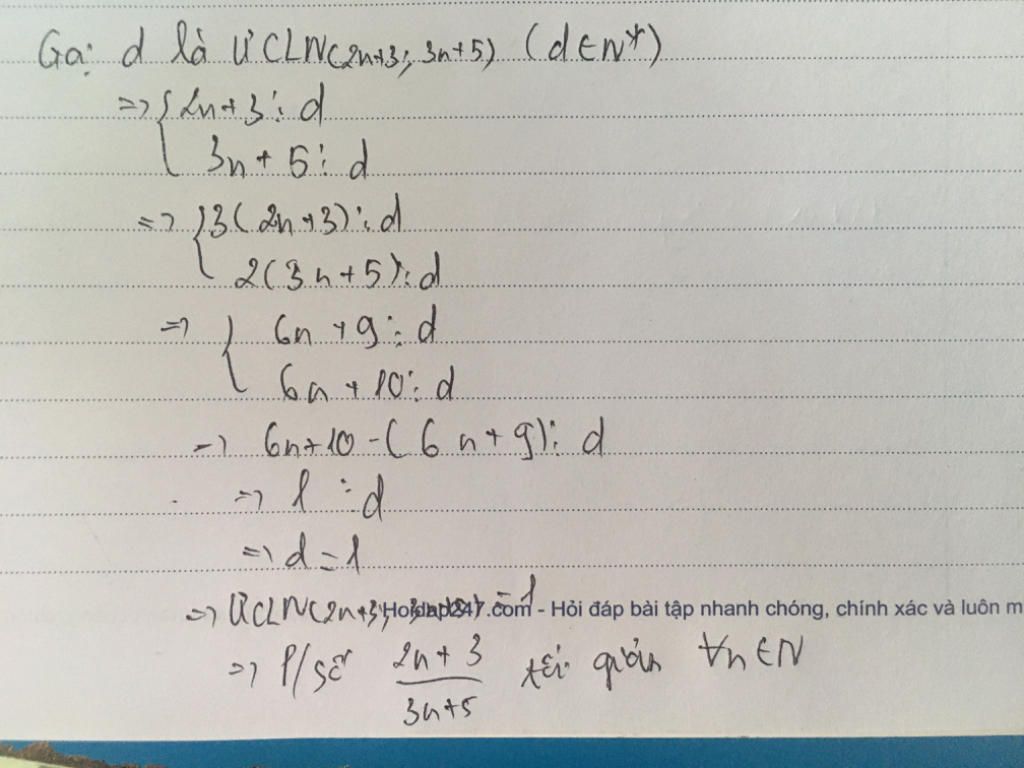 Gọi d là ƯCLN(2n+3; 3n+5) (d∈N*)
=> { 2n+3 ⋮ d
3n+5 ⋮ d
=> { 3(2n+3) ⋮ d
2(3n+5) ⋮ d
=> { 6n+9 ⋮ d
6n+10 ⋮ d
=> 6n+10-(6n+9) ⋮ d
=> 1 ⋮ d
=> d=1
=> ƯCLN(2n+3; 3n+5) = 1
Hoidap247.com - Hỏi đáp bài tập nhanh chóng, chính xác và luôn m
=> P/số 2n+3/3n+5 tối giản ∀n∈N